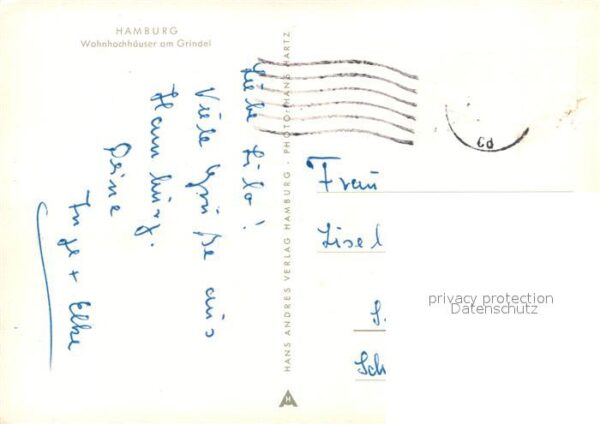 HAMBURG
Wohnhochhäuser am Grindel
Liebe Lilo!
Viele Grüße aus
Hamburg.
Deine
Inge + Elke
HANS ANDRES VERLAG HAMBURG · PHOTO: HANS HARTZ
H
Frau
Lisel
S.
Sch
privacy protection
Datenschutz